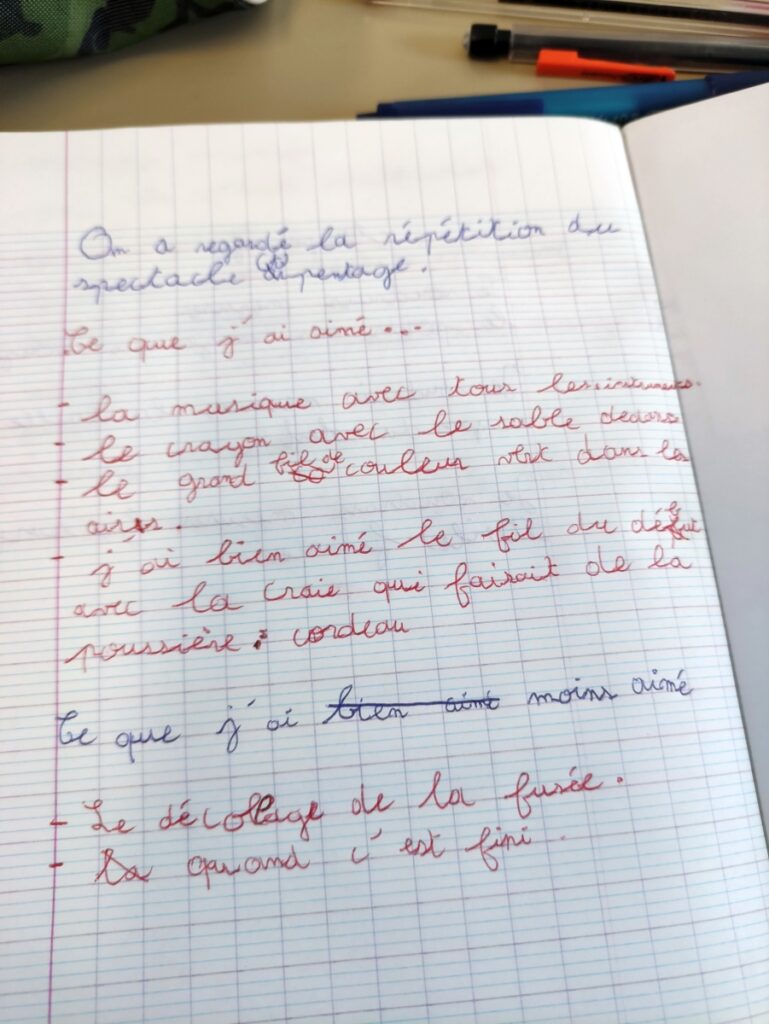 On a regardé la répétition du
spectacle Arpentage.
Ce que j'ai aimé...
- la musique avec tous les instruments.
- le crayon avec le sable dedans
- le grand fil de couleur vert dans les
airs.
- j'ai bien aimé le fil du début
avec la craie qui faisait de la
poussière : cordeau
Ce que j'ai bien aimé moins aimé
- Le décollage de la fusée.
- quand c'est fini.